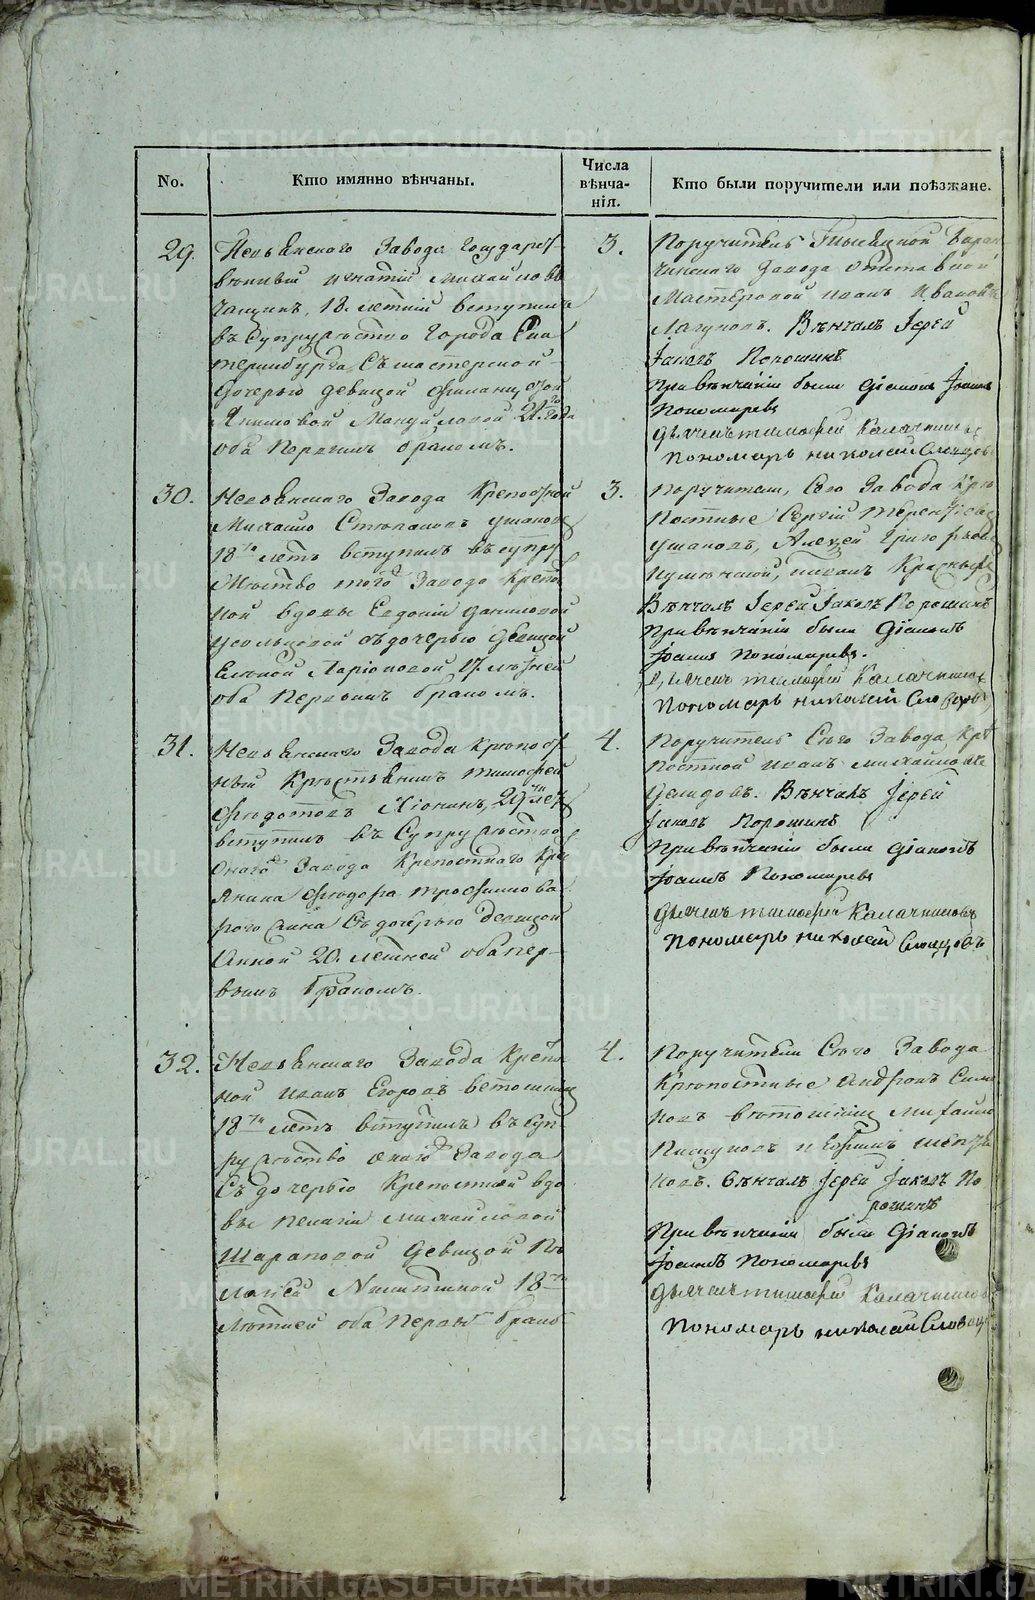 No.
Кто имянно вѣнчаны.
Числа
вѣнча-
нія.
Кто были поручители или поѣзжане.
29.
Невьянскаго Завода Государст-
венный Игнатій Михайловъ
18. летній вступилъ
въ Супружество Города Ека
теринбурга, Съ мастерской
дочерью девицой
Якимовой Мануйловой 21. года
оба Первымъ бракомъ.
3.
Поручитель
Завода отставной
Мастеровой Иванъ Ивановъ
Лагуновъ. Вѣнчалъ Іерей
Іаковъ Порошинъ
При вѣнчаніи были Діаконъ Іоаннъ
Пономаревъ
Дьячекъ тимофей Калачниковъ
Пономарь николай Словцовъ
30.
Невьянскаго Завода Крепостной
Михайло Степановъ Ушаковъ
18ти летъ вступилъ въ супру
жество того Завода Крепост
ной вдовы Евдокіи Даниловой
съ дочерью девицой
Еленой Ларіоновой 17. летней
оба Первымъ бракомъ.
3.
Поручители, Сего Завода Кре
постные Сергій Терентьевъ
Ушаковъ, Алексей Григорьевъ
Иванъ
Вѣнчалъ Іерей Іаковъ Порошинъ
При вѣнчаніи были Діаконъ
Іоаннъ Пономаревъ.
Дьячекъ тимофей Калачниковъ
Пономарь николай Словцовъ
31.
Невьянскаго Завода Крепост
ный Крестьянинъ Тимофей
Федотовъ 29ти летъ
вступилъ въ Супружество
Онаго Завода Крепостнаго Кре
янина Федора Трофимова
съ дочерью девицой
Анной 20. летней оба пер-
вымъ бракомъ.
4.
Поручитель Сего Завода Кре
постной Иванъ Михайловъ
Демидовъ. Вѣнчалъ Іерей
Іаковъ Порошинъ
При вѣнчаніи были Діаконъ
Іоаннъ Пономаревъ
Дьячекъ тимофей Калачниковъ
Пономарь николай Словцовъ
32.
Невьянскаго Завода Крепост
ной Иванъ Егоровъ Ветошкинъ
18ти летъ вступилъ въ Суп
ружество онаго Завода
Съ дочерью Крепостной вдо
вы Пелагіи Михайловой
Шараповой Девицой Пе
лагеей Никитиной 18ти
летней оба Первымъ брако
4.
Поручители Сего Завода
Крепостные Андронъ Симо
новъ Ветошкинъ Михайло
Пискуновъ и
новъ. Вѣнчалъ Іерей Іаковъ По
рошинъ
При вѣнчаніи были Діаконъ
Іоаннъ Пономаревъ
Дьячекъ тимофей Калачниковъ
Пономарь николай Словцовъ
METRIKI.GASO-URAL.RU